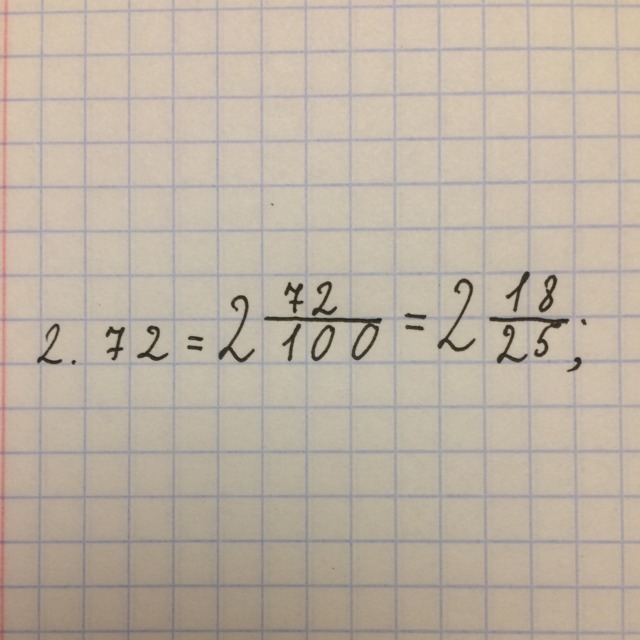 2.72 = 2 72/100 = 2 18/25;